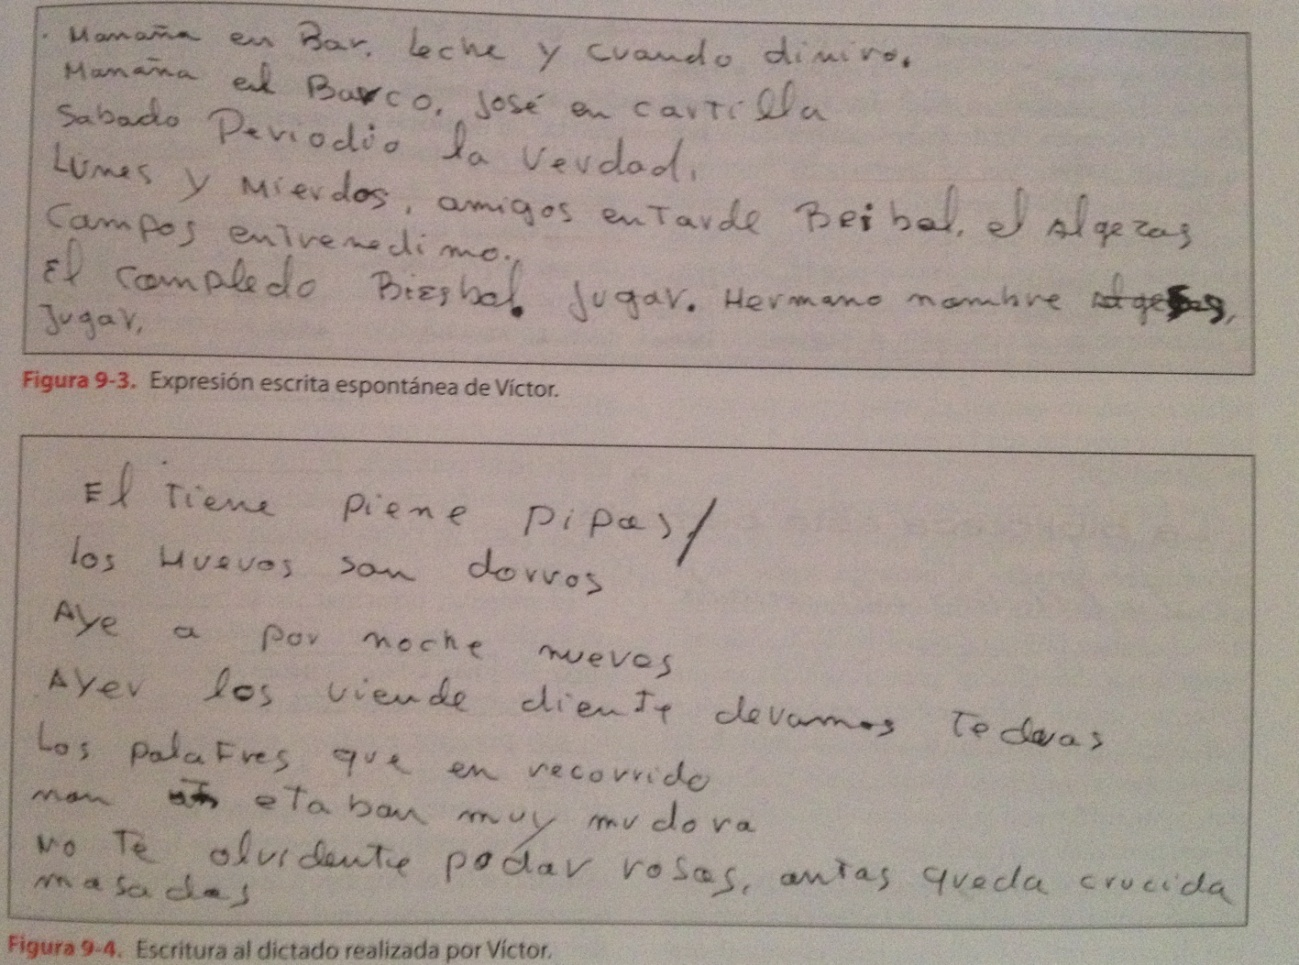 . Mamaña en Bar. Leche y cuando diniro.
Manaña el Barco. José en cartilla
Sabado Periodio la Verdad.
Lumes y Mierdos, amigos en Tarde Beibal, el Algezas
Campos entrenedimo.
El Compledo Biesbal. Jugar. Hermano nombre
Jugar.
Figura 9-3. Expresión escrita espontánea de Víctor.
El Tiene piene pipas/
los Huevos son dorros
Aye a por noche nuevos
Ayer los viende diente devamos Tedeas
Los palaFres que en recorrido
non etaban muy mudora
No Te olvidente podar rosas, antas queda crucida
masadas
Figura 9-4. Escritura al dictado realizada por Víctor.